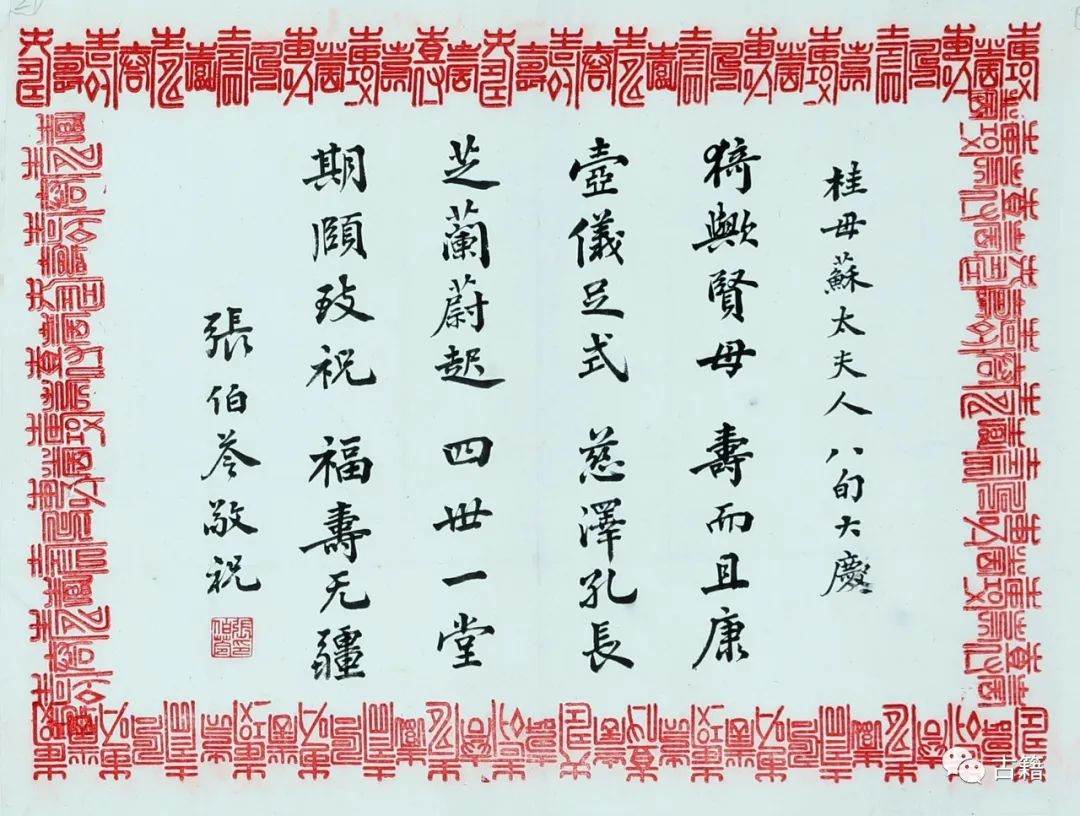 桂母蘇太夫人八旬大慶
猗歟賢母 壽而且康
壺儀足式 慈澤孔長
芝蘭蔚起 四世一堂
期頤致祝 福壽无疆
張伯苓敬祝
古籍